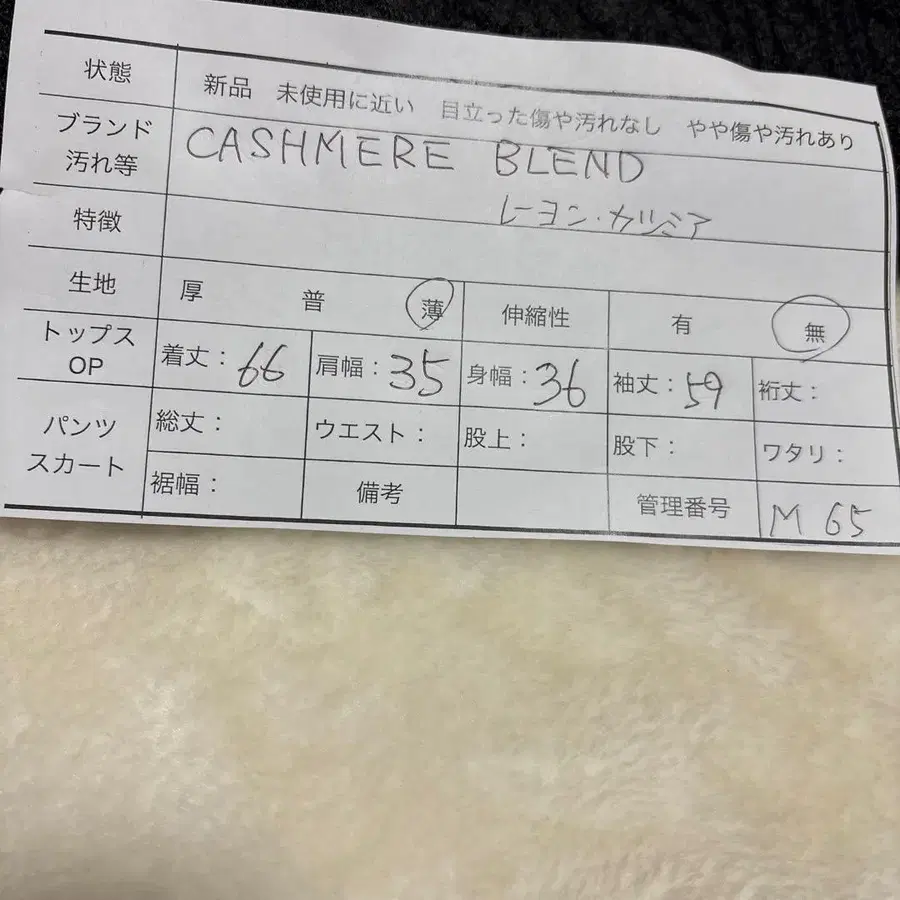 状態 新品 未使用に近い 目立った傷や汚れなし やや傷や汚れあり
ブランド CASHMERE BLEND
汚れ等
レーヨン・カツミア
特徴
生地 厚 普 薄 伸縮性 有 無
トップス OP 着丈: 66 肩幅: 35 身幅: 36 袖丈: 59 裄丈:
パンツ スカート 総丈: ウエスト: 股上: 股下: ワタリ:
裾幅: 備考 管理番号 M 65